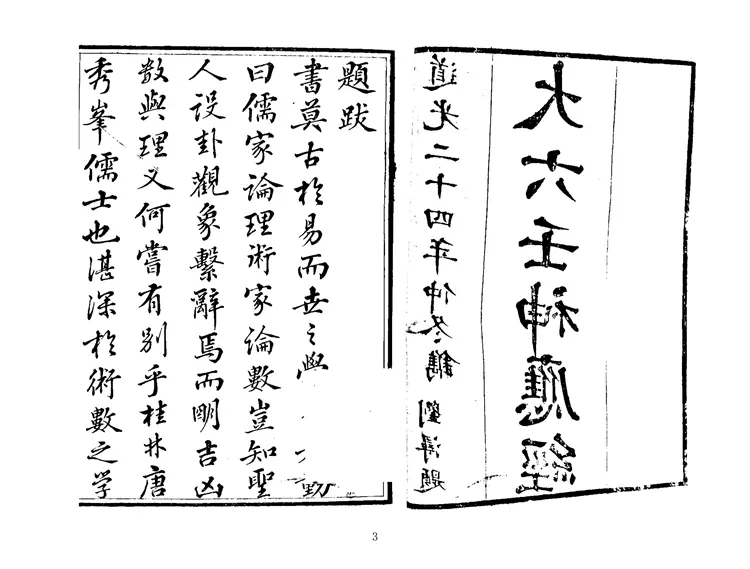 大六壬神應經
道光二十四年仲冬鐫 劉 題
題跋
書莫古於易而世之學 動
曰儒家論理術家論數豈知聖
人設卦觀象繫辭焉而明吉凶
數與理又何嘗有別乎桂林唐
秀峯儒士也湛深於術數之学
3